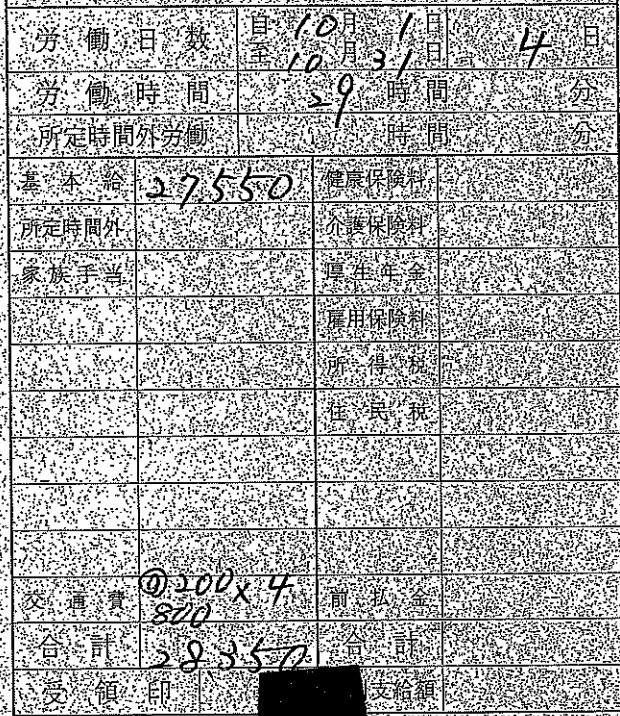 労働日数 自 10月 1日 4日
至 10月 31日
労働時間 29 時間 分
所定時間外労働 時間 分
基本給 27,550 健康保険料
所定時間外 介護保険料
家族手当 厚生年金
雇用保険料
所得税
住民税
交通費 @200×4 前払金
800
合計 28350 合計
受領印 支給額